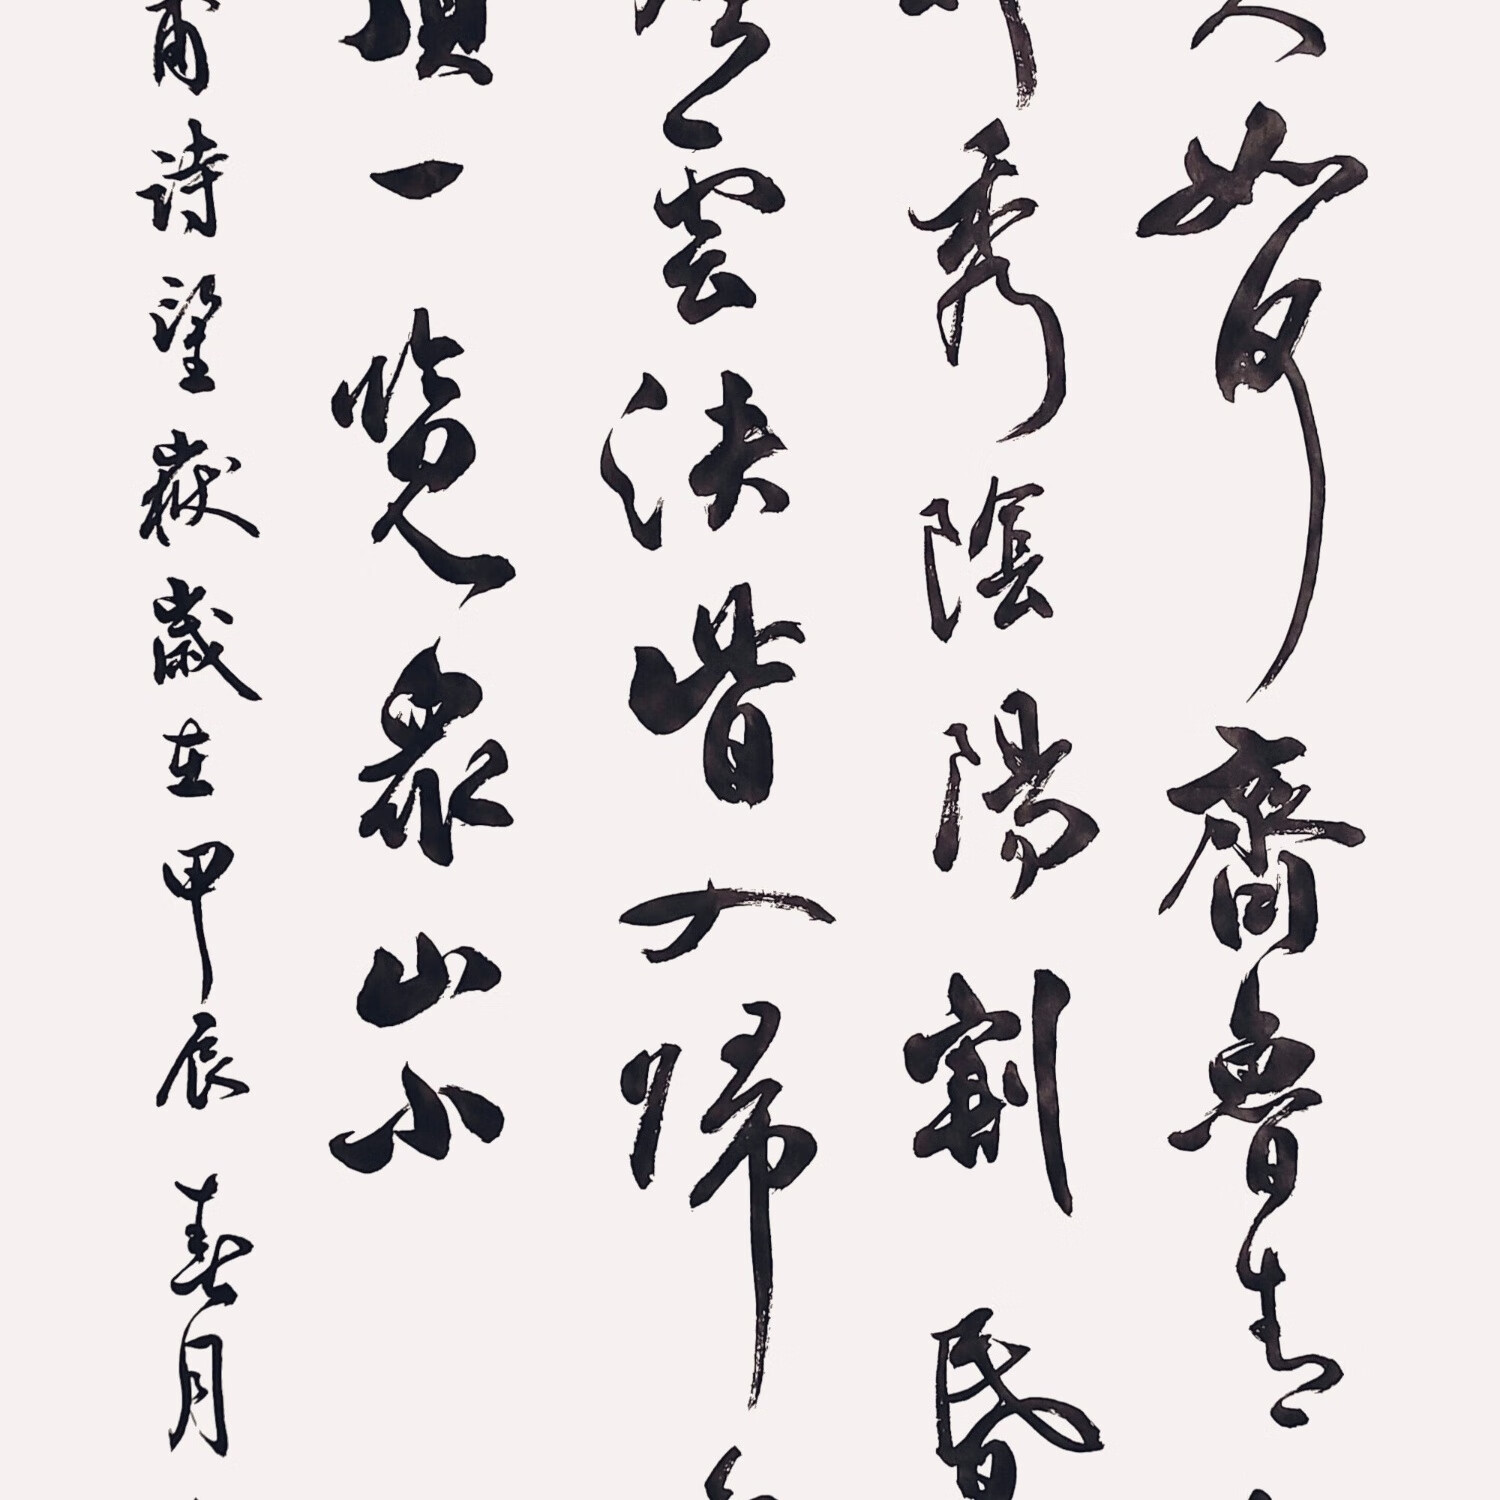 如何齊魯青
秀陰陽割昏
雲決眥入歸
頂一覽眾山小
甫詩望嶽歲在甲辰春月